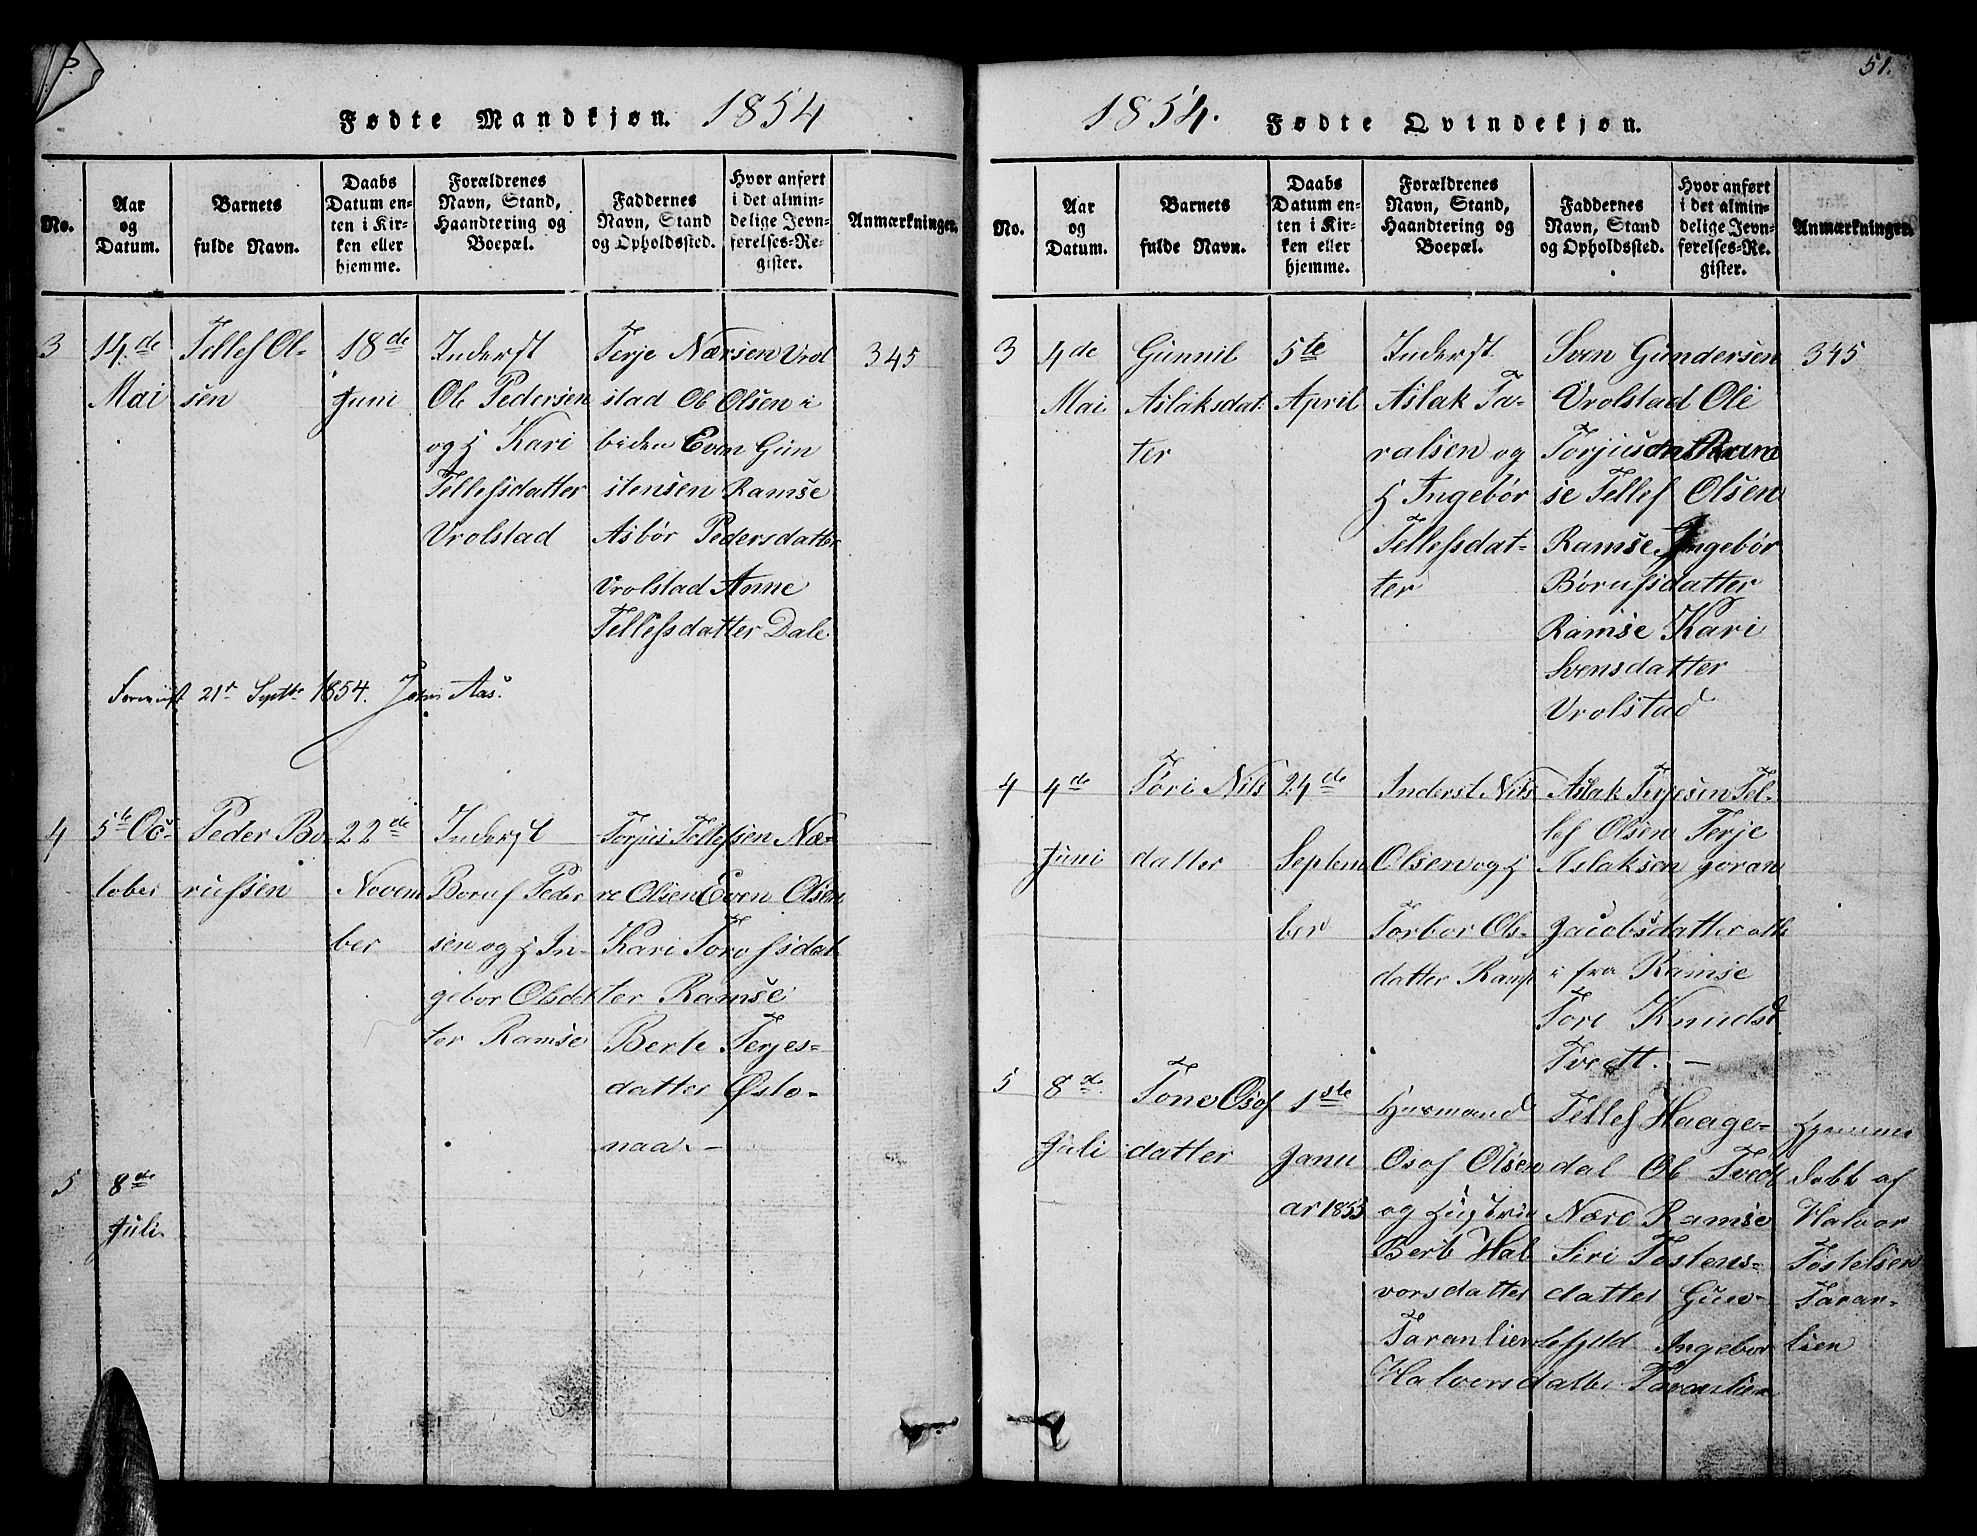 Fødte Mandkjøn. 1854
No.
Aar
og
Datum.
Barnets
fulde Navn.
Daabs
Datum en-
ten i Kir-
ken eller
hjemme.
Forældrenes
Navn, Stand,
Haandtering og
Boepæl.
Faddernes
Navn, Stand
og Opholdssted.
Hvor anført
i det almin-
delige Jevn-
førelses-Re-
gister.
Anmærkninger.
3
14de
Mai
Tellef Ol-
sen
18de
Juni
Inderst
Ole Pedersen
og H Kari
Tellefsdatter
Vrolstad
Terje Nærsen Vrol
stad Ole Olsen i
biden Even Gun
stensen Ramse
Asbør Pedersdatter
Vrolstad Anne
Tellefsdatter Dale
345
21de Septbr 1854. Aas.
4
5te Oc-
tober
Peder Bo-
rufsen
22de
Novem
ber
Inderst
Boruf Peder
sen og H In-
gebor Olsdat
ter Ramse
Torjus Tellefsen Næ-
re Olsen Even Olsen
Kari Torofsdat
ter Ramse
Berte Terjes-
datter Øslo-
naa. -
5
8de
Juli.
51.
1854. Fødte Qvindekjøn.
No.
Aar
og
Datum.
Barnets
fulde Navn.
Daabs
Datum en-
ten i Kir-
ken eller
hjemme.
Forældrenes
Navn, Stand,
Haandtering og
Boepæl.
Faddernes
Navn, Stand
og Opholdssted.
Hvor anført
i det almin-
delige Jevn-
førelses-Re-
gister.
Anmærkninger.
3
4de
Mai
Gunnil
Aslaksdat:
ter
5te
April
Inderst
Aslak Ta-
ralsen og
H Ingebør
Tellefsdat-
ter
Sven Gundersen
Vrolstad Ole
Torjusen Ram
se Tellef Olsen
Ramse Ingebør
Børufsdatter
Ramse Kari
Svensdatter
Vrolstad
345
4
4de
Juni
Tøri Nils
datter
24de
Septem
ber
Inderst Nils
Olsen og H
Torbor Ols-
datter Ramse
Aslak Terjesen Tel-
lef Olsen Terje
Aslaksen Jøran
Jacobsdatter alle
i fra Ramse
Tore Knudsd.
Tvedt. -
5
8de
Juli
Tone Osof
datter
1ste
Janu
ar 1855
Husmand
Osof Olsen
og Hustrue
Berte Hal
vorsdatter
Taranlien
Tellef Haage-
dal Ole Tvedt
Nære Ramse
Siri Tostens-
datter Gun-
lefjeld Ingebor
Halvorsdatter Taranlien
Hjemme
døbt af
Halvor
Tostelsen
Taran-
lien